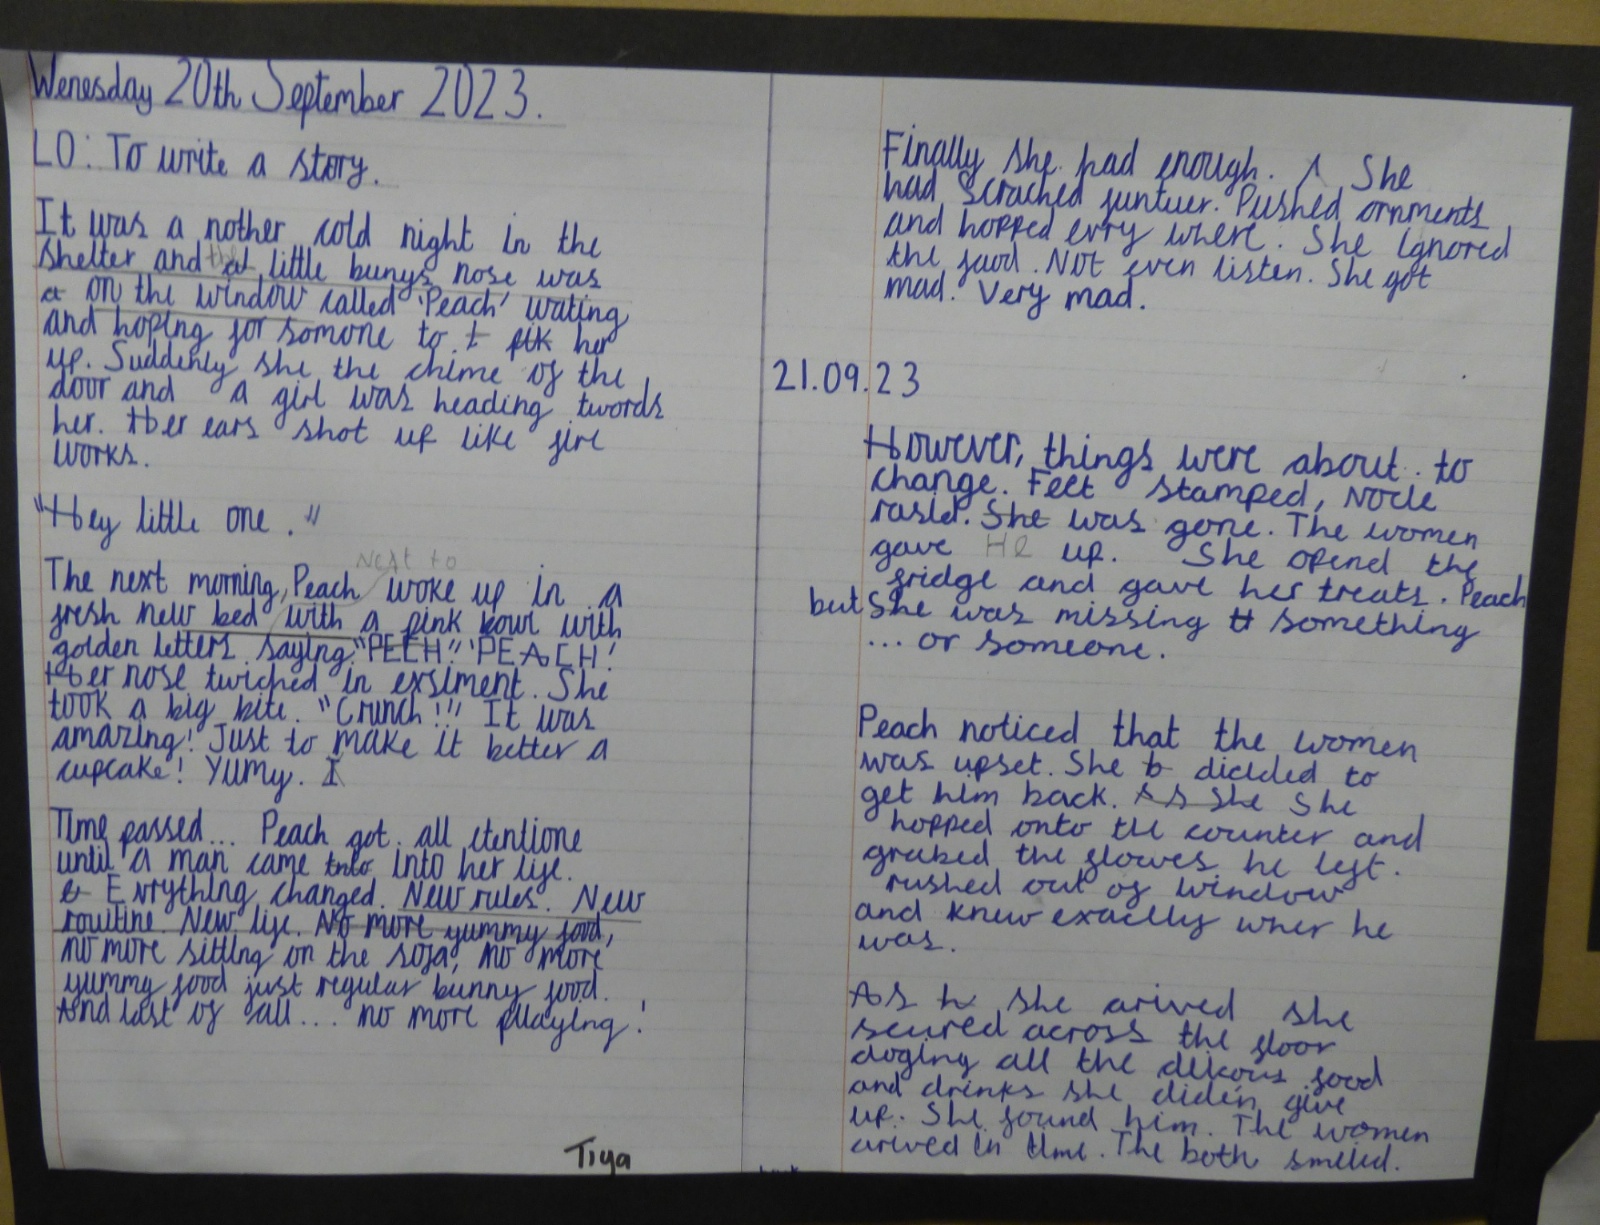 Wenesday 20th September 2023.
LO: To write a story.
It was a nother cold night in the
shelter and the little bunys nose was
on the window called 'Peach' wating
and hoping for somone to pik her
up. Suddenly she the chime of the
door and a girl was heading twords
her. Her ears shot up like fire
works.
"Hey little one."
Next to
The next morning, Peach woke up in a
fresh new bed with a pink bowl with
golden letters saying "PEECH!" 'PEACH!'
Her nose twiched in exsiment. She
took a big bite. "Crunch!!!" It was
amazing! Just to make it better a
cupcake! Yumy.
Time passed... Peach got all etentione
until a man came into her life.
Evrything changed. New rules. New
routine. New life. No more yummy food,
no more sitting on the sofa, no more
yummy food just regular bunny food.
And last of all... no more pllaying!
Tiya
Finally she had enough. She
had scrached funtuer. Pushed ornments
and hopped evry where. She ignored
the food. Not even listen. She got
mad. Very mad.
21.09.23
However, things were about to
change. Feet stamped,
She was gone. The women
gave He up. She opend the
fridge and gave her treats. Peach
but she was missing something
... or someone.
Peach noticed that the women
was upset. She dicided to
get him back. As she She
hopped onto the counter and
grabed the gloves he left.
rushed out of window
and knew exactly wher he
was.
As she arived she
scured across the floor
doging all the dilicous food
and drinks she diden give
up. She found him. The women
arived in time. The both smiled.